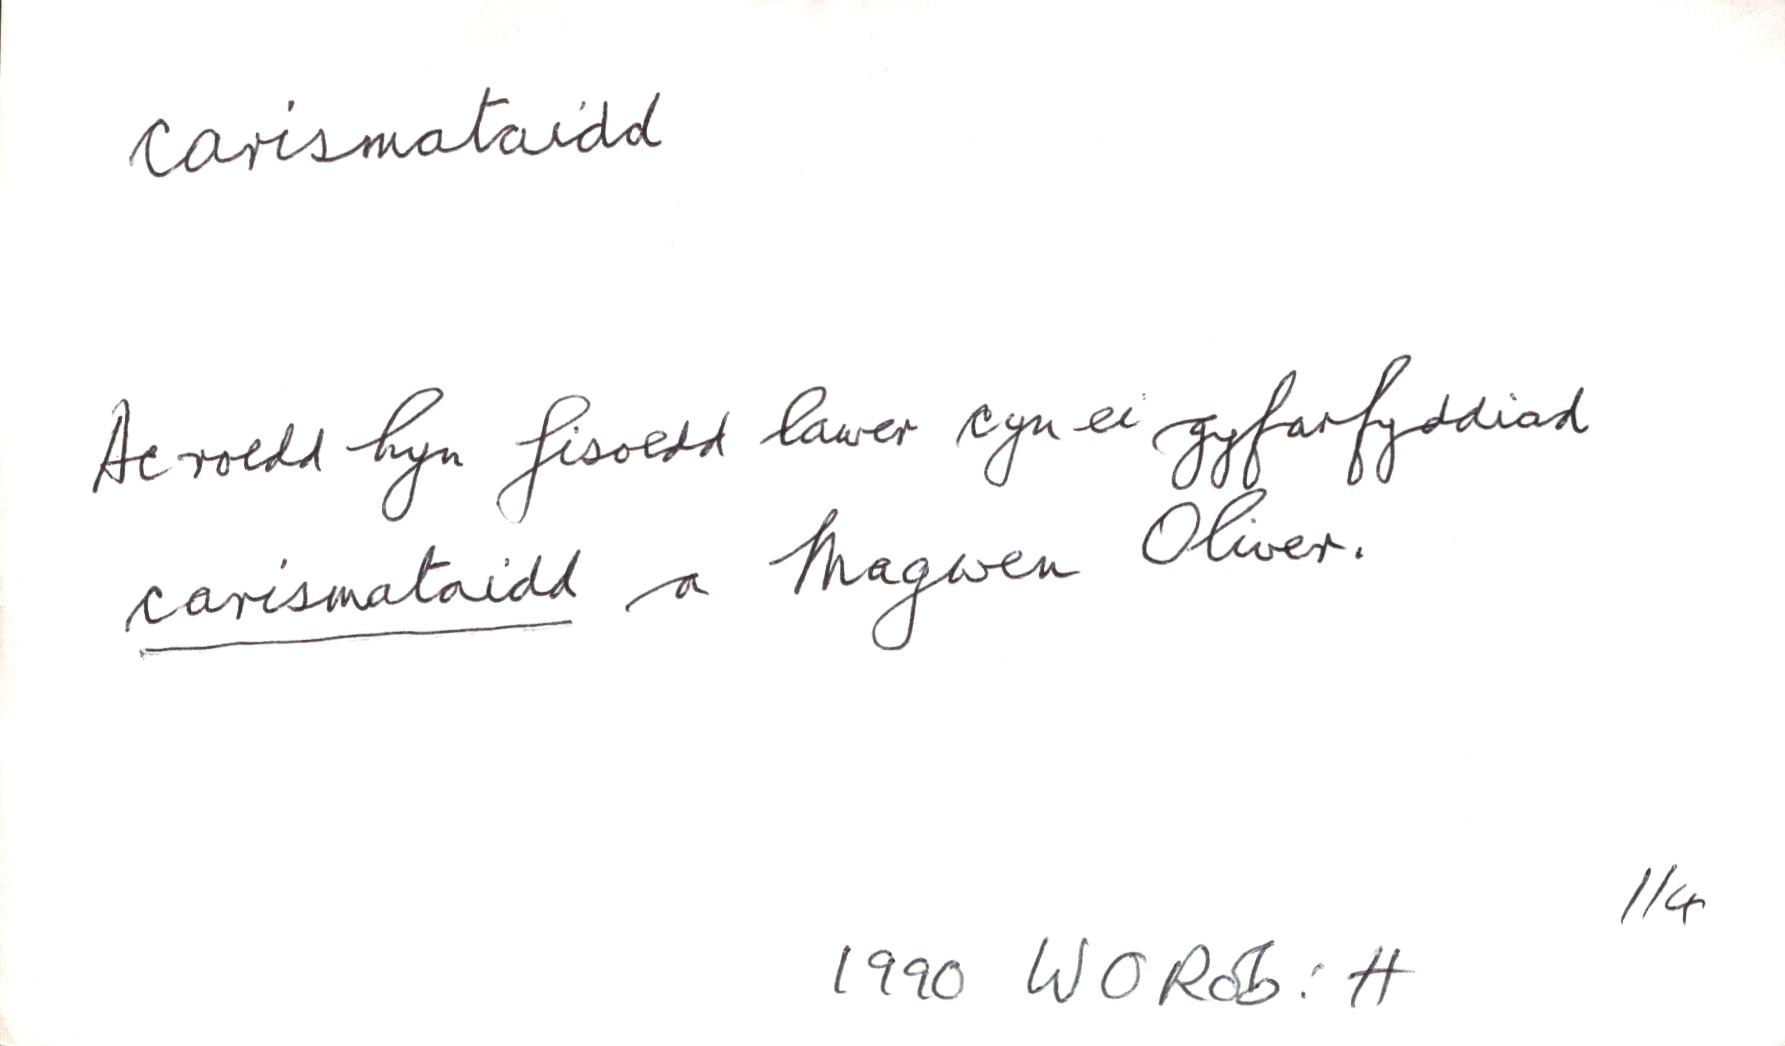 carismataidd
Ac roedd hyn fisoedd lawer cyn ei gyfarfyddiad
carismataidd a Magwen Oliver.
114
1990 WORob: H